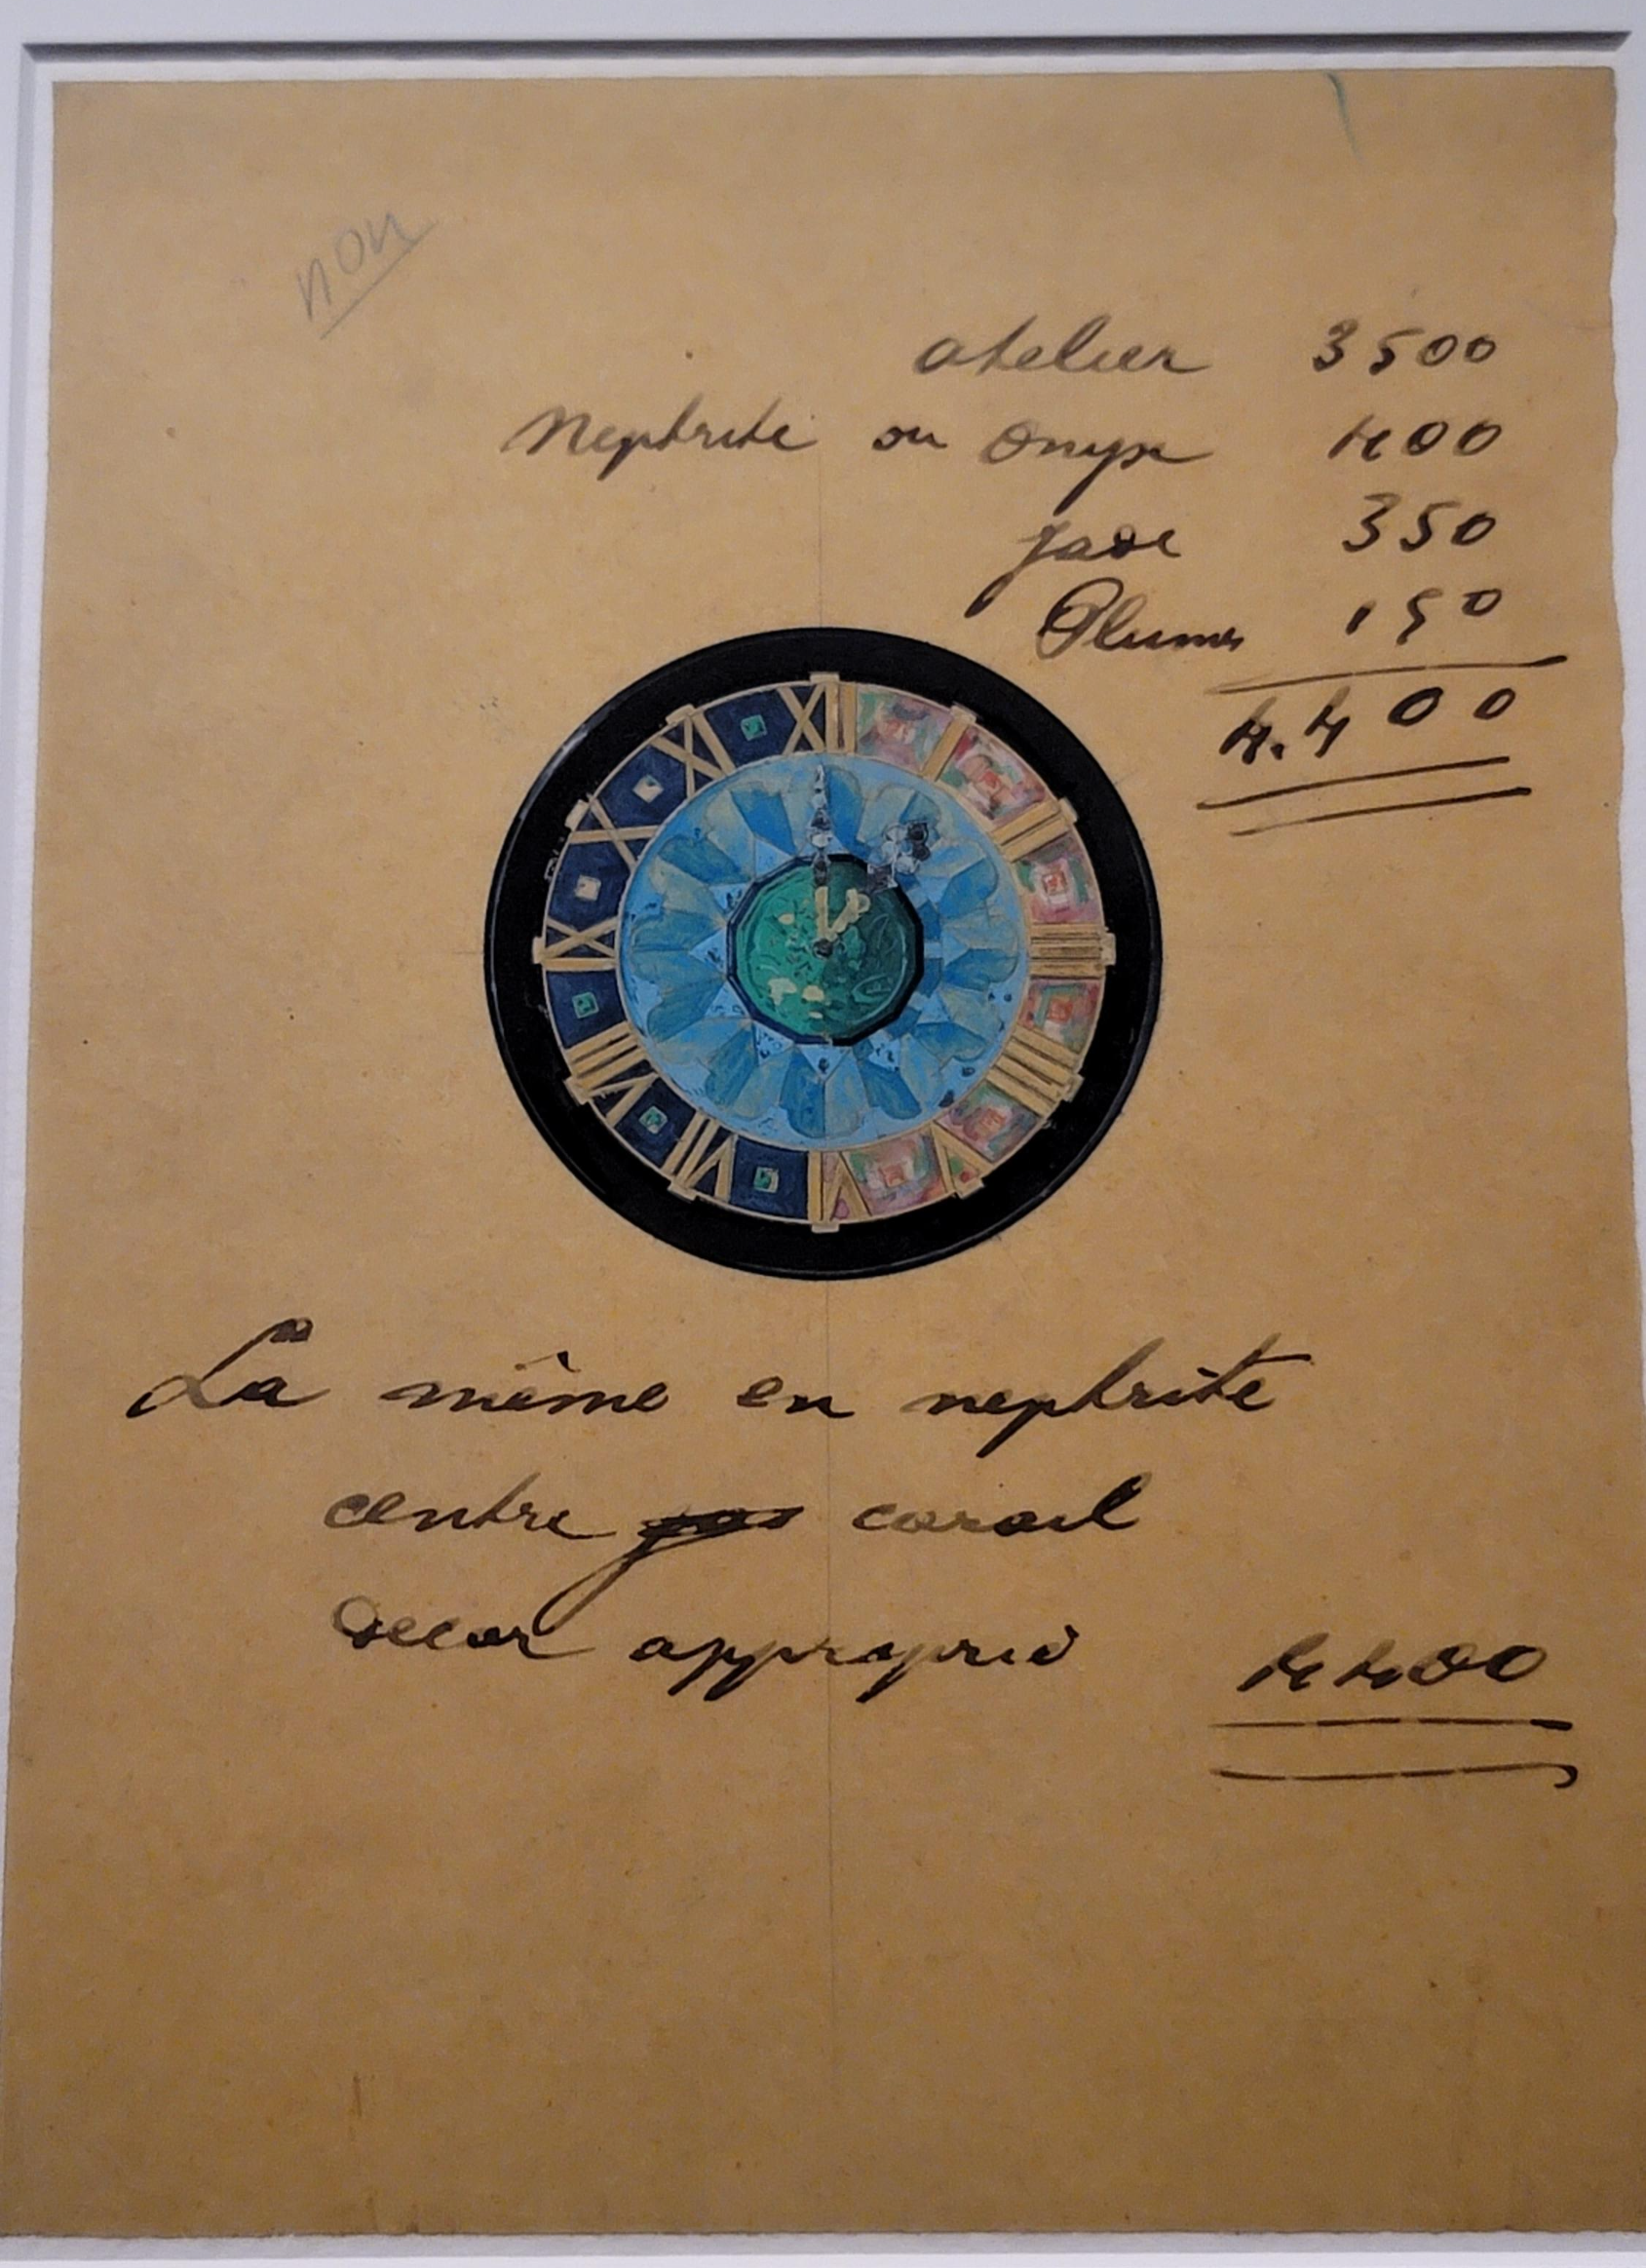 non
atelier 3500
Nephrite ou Onyx 400
jade 350
Plumes 150
4.400
XII
XI
X
IX
VIII
VII
VI
V
IIII
III
II
I
La même en nephrite
centre corail
decor approprié 4400